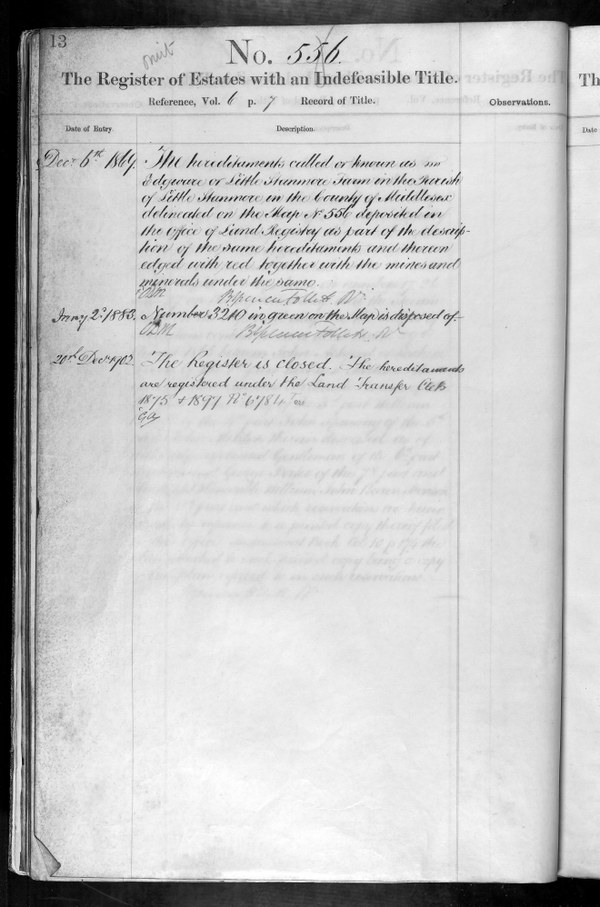 13
omit
No. 556.
The Register of Estates with an Indefeasible Title.
Reference, Vol. 6 p. 7 Record of Title.
Observations.
Date of Entry.
Description.
Decr 6th 1869. The hereditaments called or known as
Edgware or Little Stanmore Farm in the Parish
of Little Stanmore in the County of Middlesex
delineated on the Map No 556 deposited in
the office of Land Registry as part of the descrip-
tion of the same hereditaments and thereon
edged with red together with the mines and
minerals under the same.
Brent Spencer Follett Rr
2d 1883. Number 3210 in green on the Map is disposed of.
Follett Rr
20th Decr 1902. The Register is closed. The hereditaments
are registered under the Land Transfer Acts
1875 & 1897
Th
Date